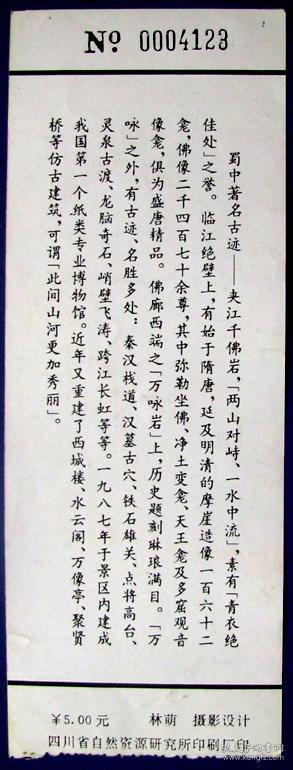 № 0004123
蜀中著名古迹——夹江千佛岩，「两山对峙、一水中流」，素有「青衣绝
佳处」之誉。临江绝壁上，有始于隋唐，延及明清的摩崖造像一百六十二
龛，佛像二千四百七十余尊，其中弥勒坐佛、净土变龛、天王龛及多窟观音
像龛，俱为盛唐精品。佛廊西端之「万咏岩」上，历史题刻琳琅满目。「万
咏」之外，有古迹、名胜多处：秦汉栈道、汉墓古穴、铁石雄关、点将高台、
灵泉古渡、龙脑奇石、峭壁飞涛、跨江长虹等等。一九八七年于景区内建成
我国第一个纸类专业博物馆。近年又重建了西城楼、水云阁、万像亭、聚贤
桥等仿古建筑，可谓「此间山河更加秀丽」。
￥5.00元 林萌 摄影设计
四川省自然资源研究所印刷厂印
孔夫子旧书网